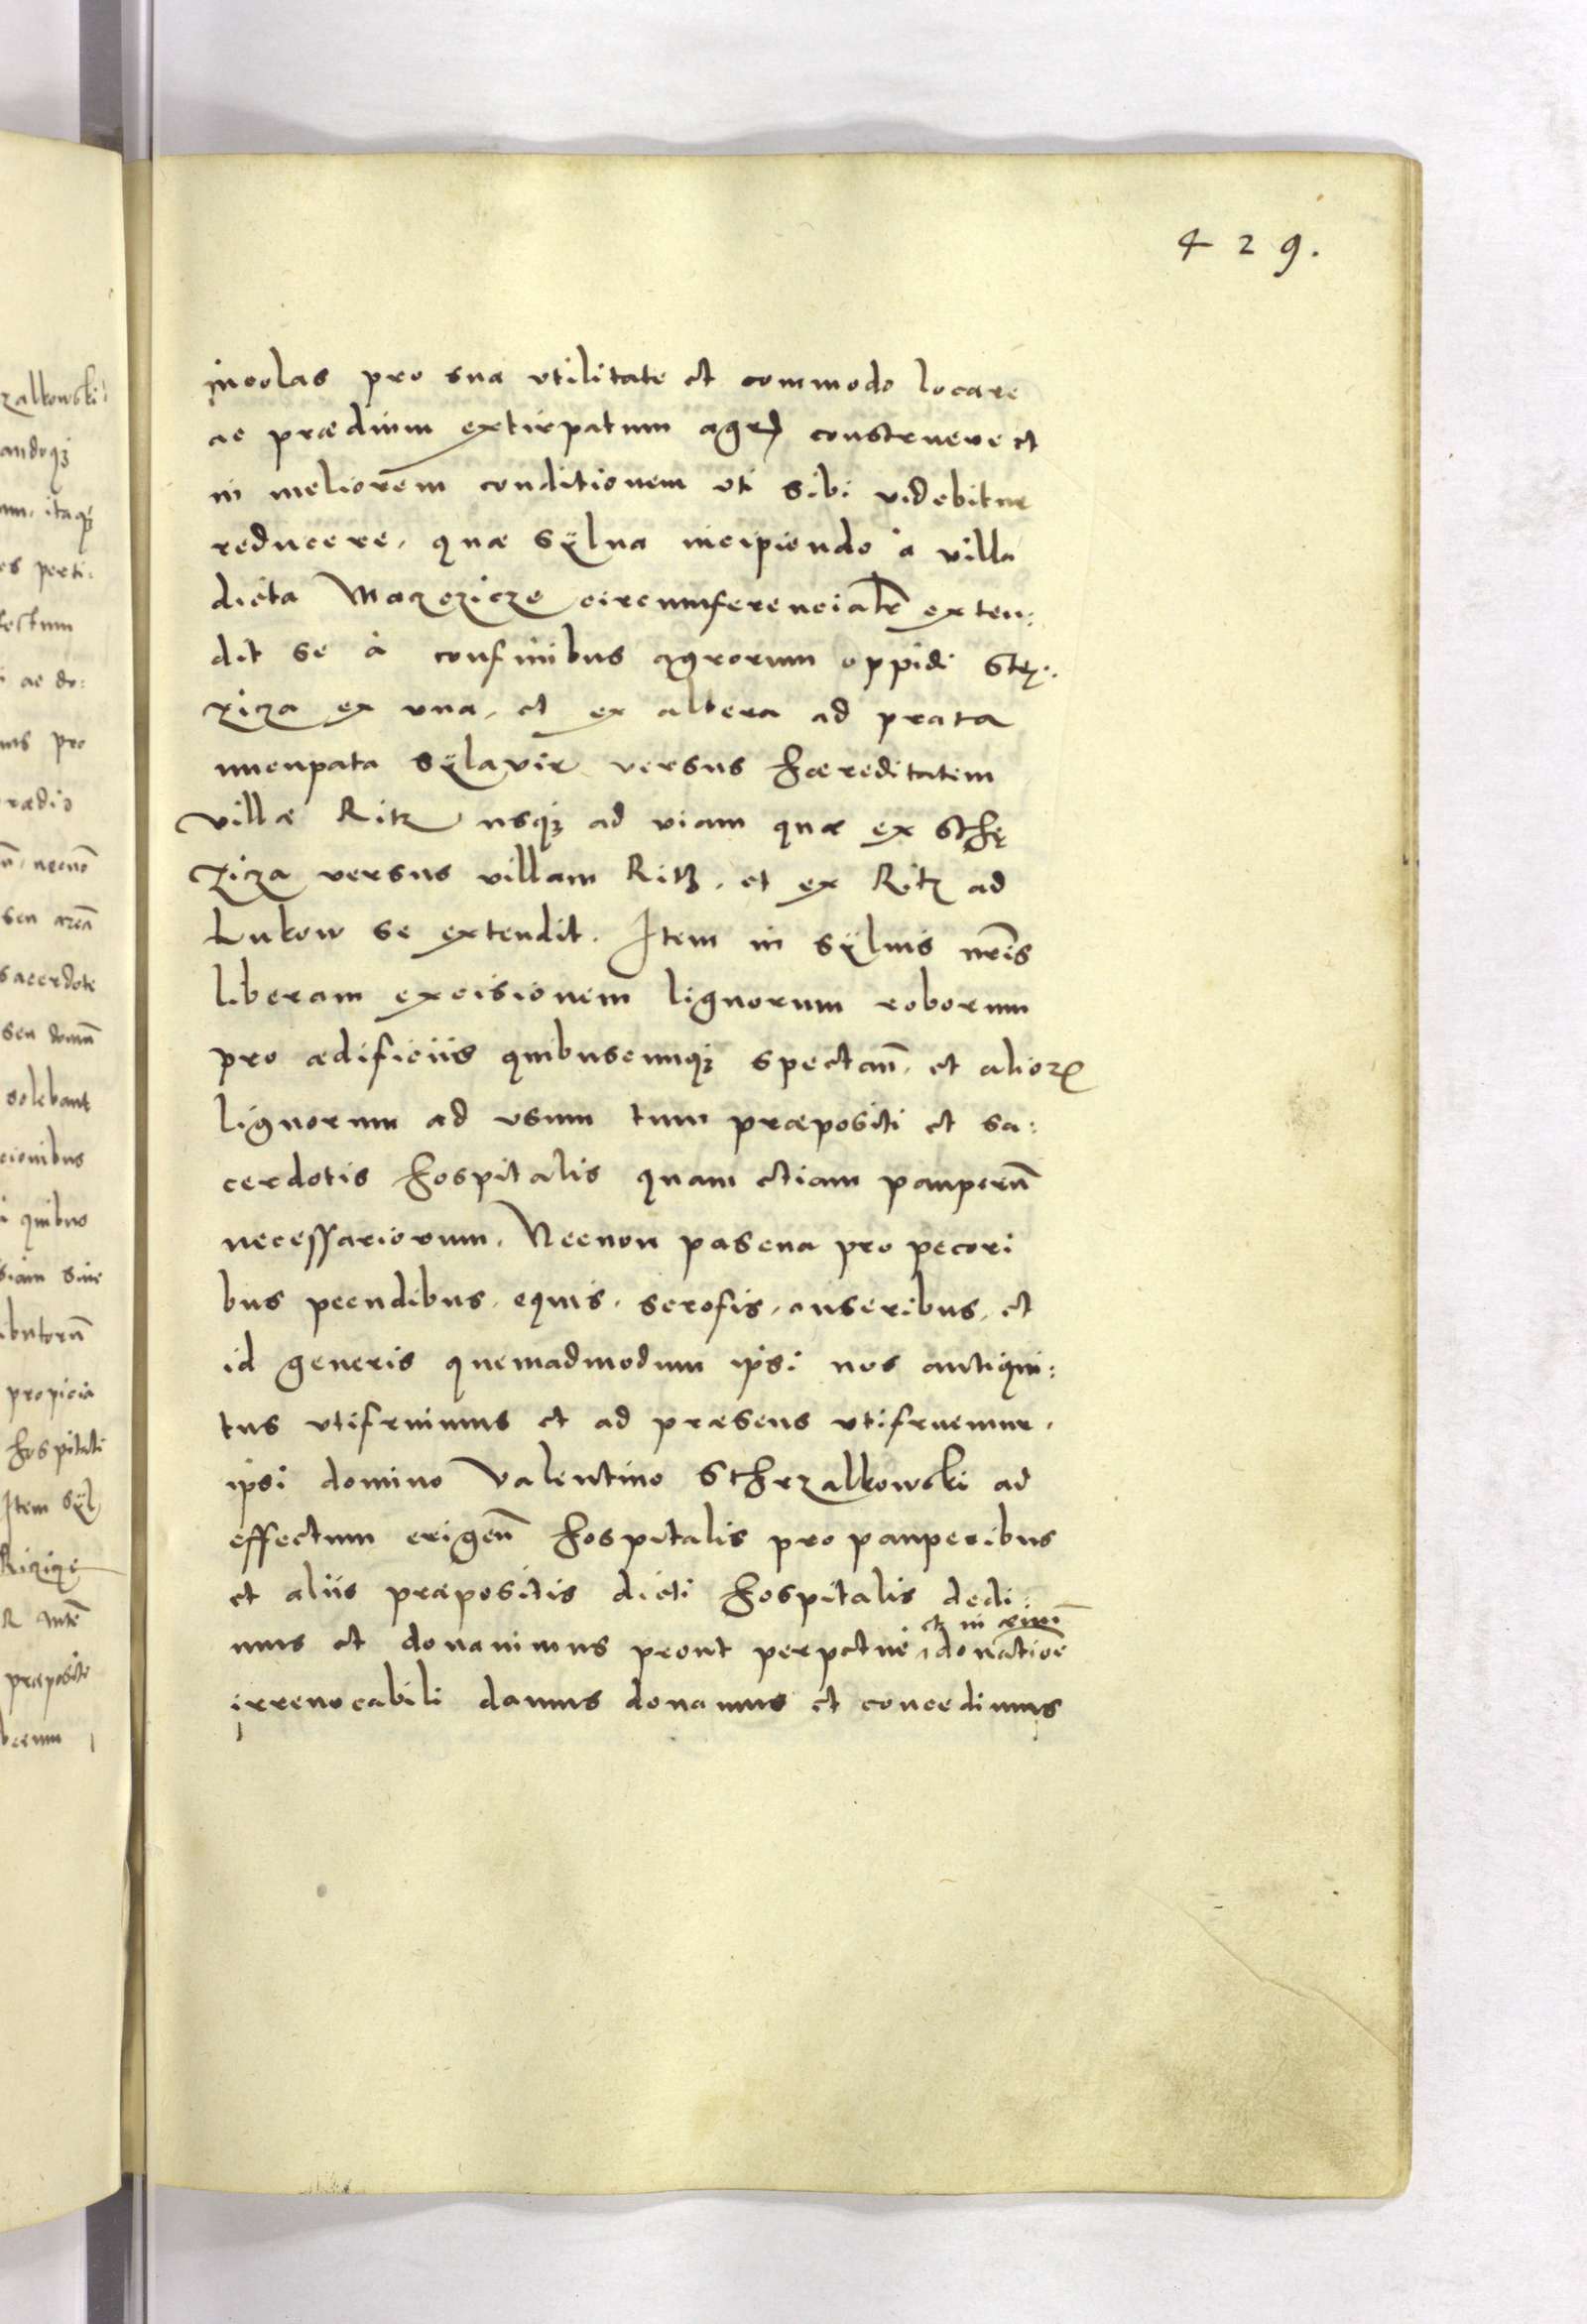 429.
incolas pro sua utilitate et commodo locare
ac prædium extirpatum agrū construere et
in meliorem conditionem uti sibi videbitur
reducere, quæ sÿlva incipiendo à villa
dicta Maczezicze circumferencialr̄ exten:
dit se à confinibus agrorum oppidi Stę:
zicza ex una, et ex altera ad prata
nuncpata Sÿlavir versus hæreditatem
villæ Ritz usq; ad viam quæ ex Sthę
zicza versus villam Ritz, et ex Ritz ad
Lukow se extendit. Item in sÿlvis nr̄is
liberam excisionem lignorum roborum
pro ædificiis quibuscumq; spectan̄, et alior
lignorum ad usum tum præpositi et sa:
cerdotis hospitalis quam etiam pauperū
necessariorum, Necnon pascua pro pecori
bus pecudibus, equis, scrofis, anseribus, et
id generis quemadmodum ipsi nos antiqui:
tus utifruimus et ad præsens utifruemur,
ipsi domino Valentino Sthrzalkowski ad
effectum erigen̄ hospitalis pro pauperibus
et aliis præpositis dicti hospitalis dedi
et in ævū
mus et donavimus prout perpetuè donatioē
irrevocabili damus donamus et concedimus
zalkowski
andoq;
um, itaq;
es perti:
fectum
i ac do:
mus pro
rædio
necnō
seu areā
sacerdote
seu domū
solebant
cionibus
i quibus
siam sive
ibutorū
propicia
hospitali
Item Sÿl
præposito